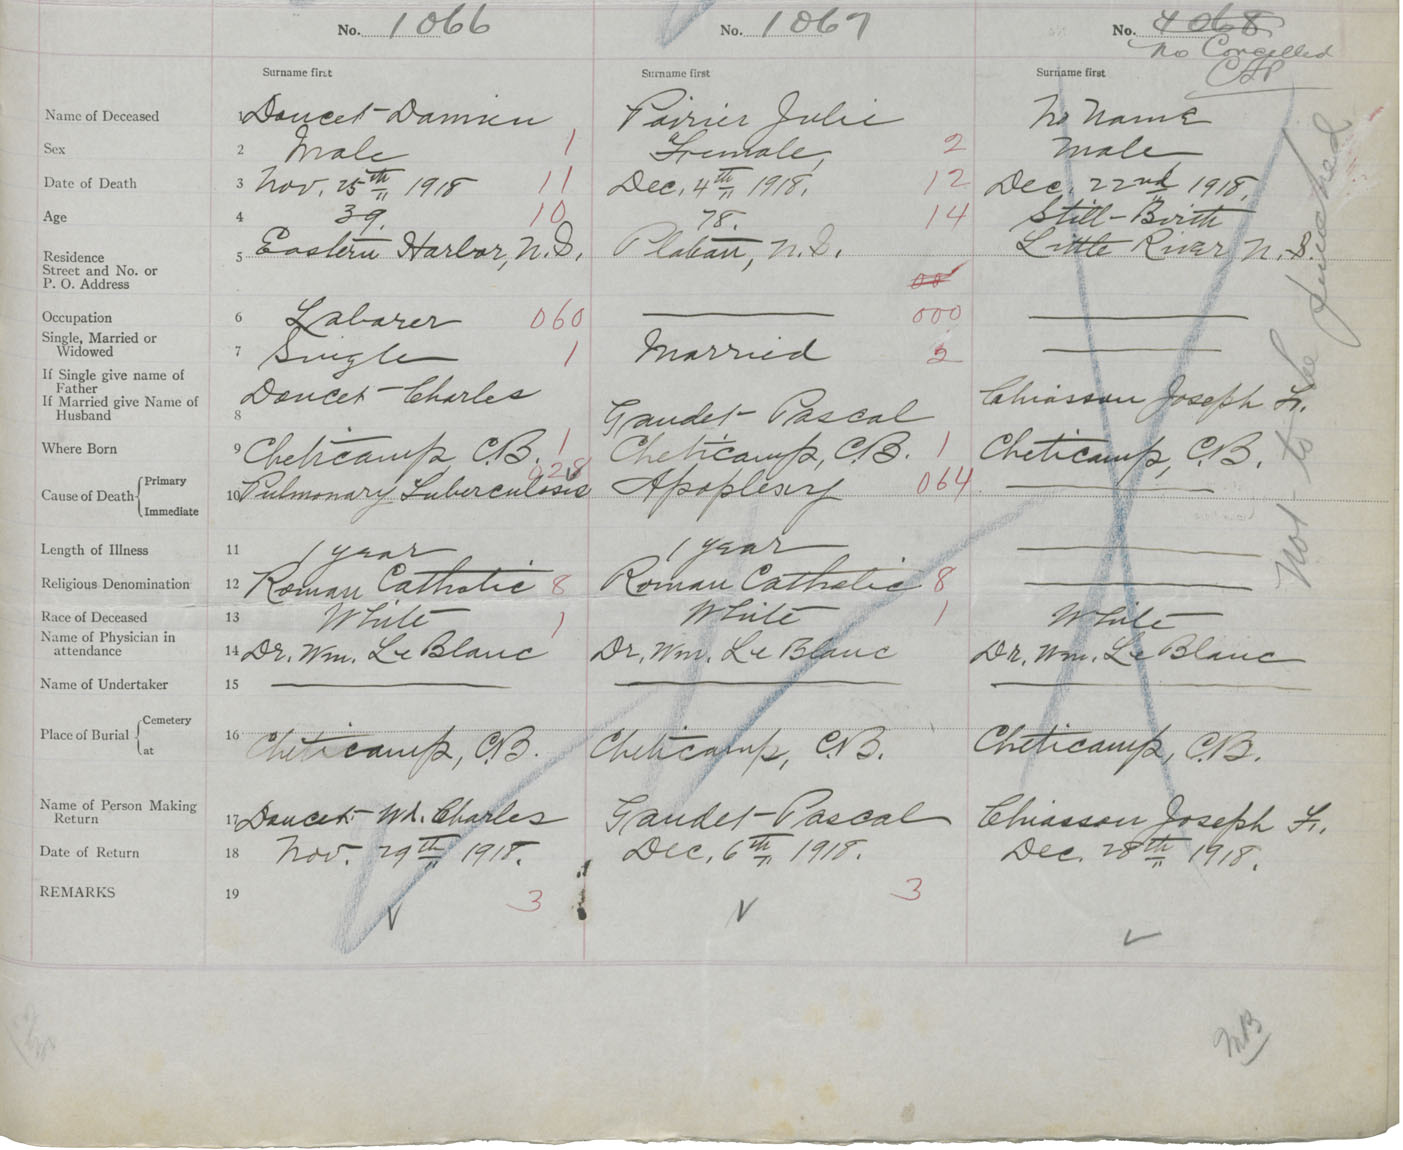 No. 1066 No. 1067 No. 4068
No Cancelled
Surname first Surname first Surname first
Name of Deceased 1 Doucet - Damien Poirier Julie No Name
Sex 2 Male 1 Female, 2 Male
Date of Death 3 Nov. 25th 1918 11 Dec. 4th 1918. 12 Dec. 22nd 1918.
Age 4 39. 10 78. 14 Still-Birth
Residence
Street and No. or
P. O. Address
5 Eastern Harbor, N.S. Plateau, N.S. Little River N.S.
00
Occupation 6 Laborer 060 000
Single, Married or
Widowed
7 Single 1 Married 2
If Single give name of
Father
If Married give Name of
Husband
8 Doucet - Charles Gaudet - Pascal Chiasson Joseph
Where Born 9 Cheticamp C.B. 1 Cheticamp, C.B. 1 Cheticamp, C.B.
Cause of Death Primary
Immediate
10 Pulmonary Tuberculosis 028 Apoplexy 064
Length of Illness 11 1 year 1 year
Religious Denomination 12 Roman Catholic 8 Roman Catholic 8
Race of Deceased 13 White 1 White 1 White
Name of Physician in
attendance
14 Dr. Wm. Le Blanc Dr. Wm. Le Blanc Dr. Wm. Le Blanc
Name of Undertaker 15
Place of Burial Cemetery
at
16 Cheticamp, C.B. Cheticamp, C.B. Cheticamp, C.B.
Name of Person Making
Return
17 Doucet - Charles Gaudet - Pascal Chiasson Joseph
Date of Return 18 Nov. 29th 1918. Dec. 6th 1918. Dec. 28th 1918.
REMARKS 19 3 3
Not to be punched
MB